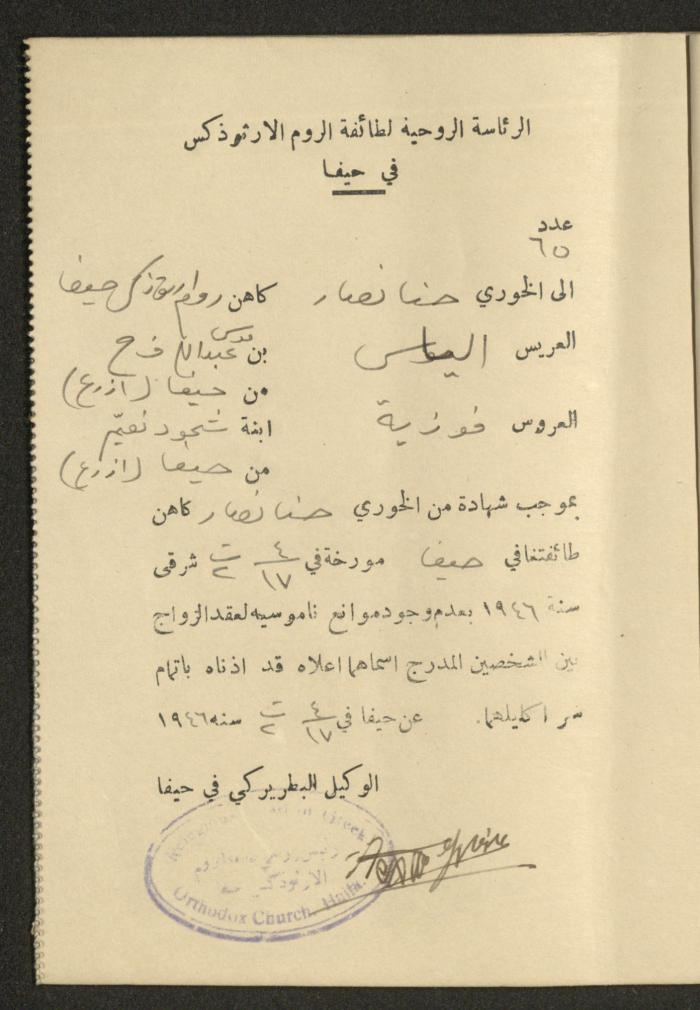 الرئاسة الروحية لطائفة الروم الارثوذكس
في حيفا
عدد
٦٥
الى الخوري حنا نصار كاهن روم ارثوذكس حيفا
العريس الياس بن عبدالله فرح
من حيفا (ازرع)
العروس فوزية ابنة نعيّم
من حيفا (ازرع)
بموجب شهادة من الخوري حنا نصار كاهن
طائفتنا في حيفا مورخة في ٤/١٧ ت٢ شرقى
سنة ١٩٤٦ بعدم وجود موانع ناموسيه لعقد الزواج
بين الشخصين المدرج اسماهما اعلاه قد اذناه باتمام
سر اكليلهما. عن حيفا في ٤/١٧ ت٢ سنه ١٩٤٦
الوكيل البطريركي في حيفا
Greek
الارثوذكس
Orthodox Church, Haifa